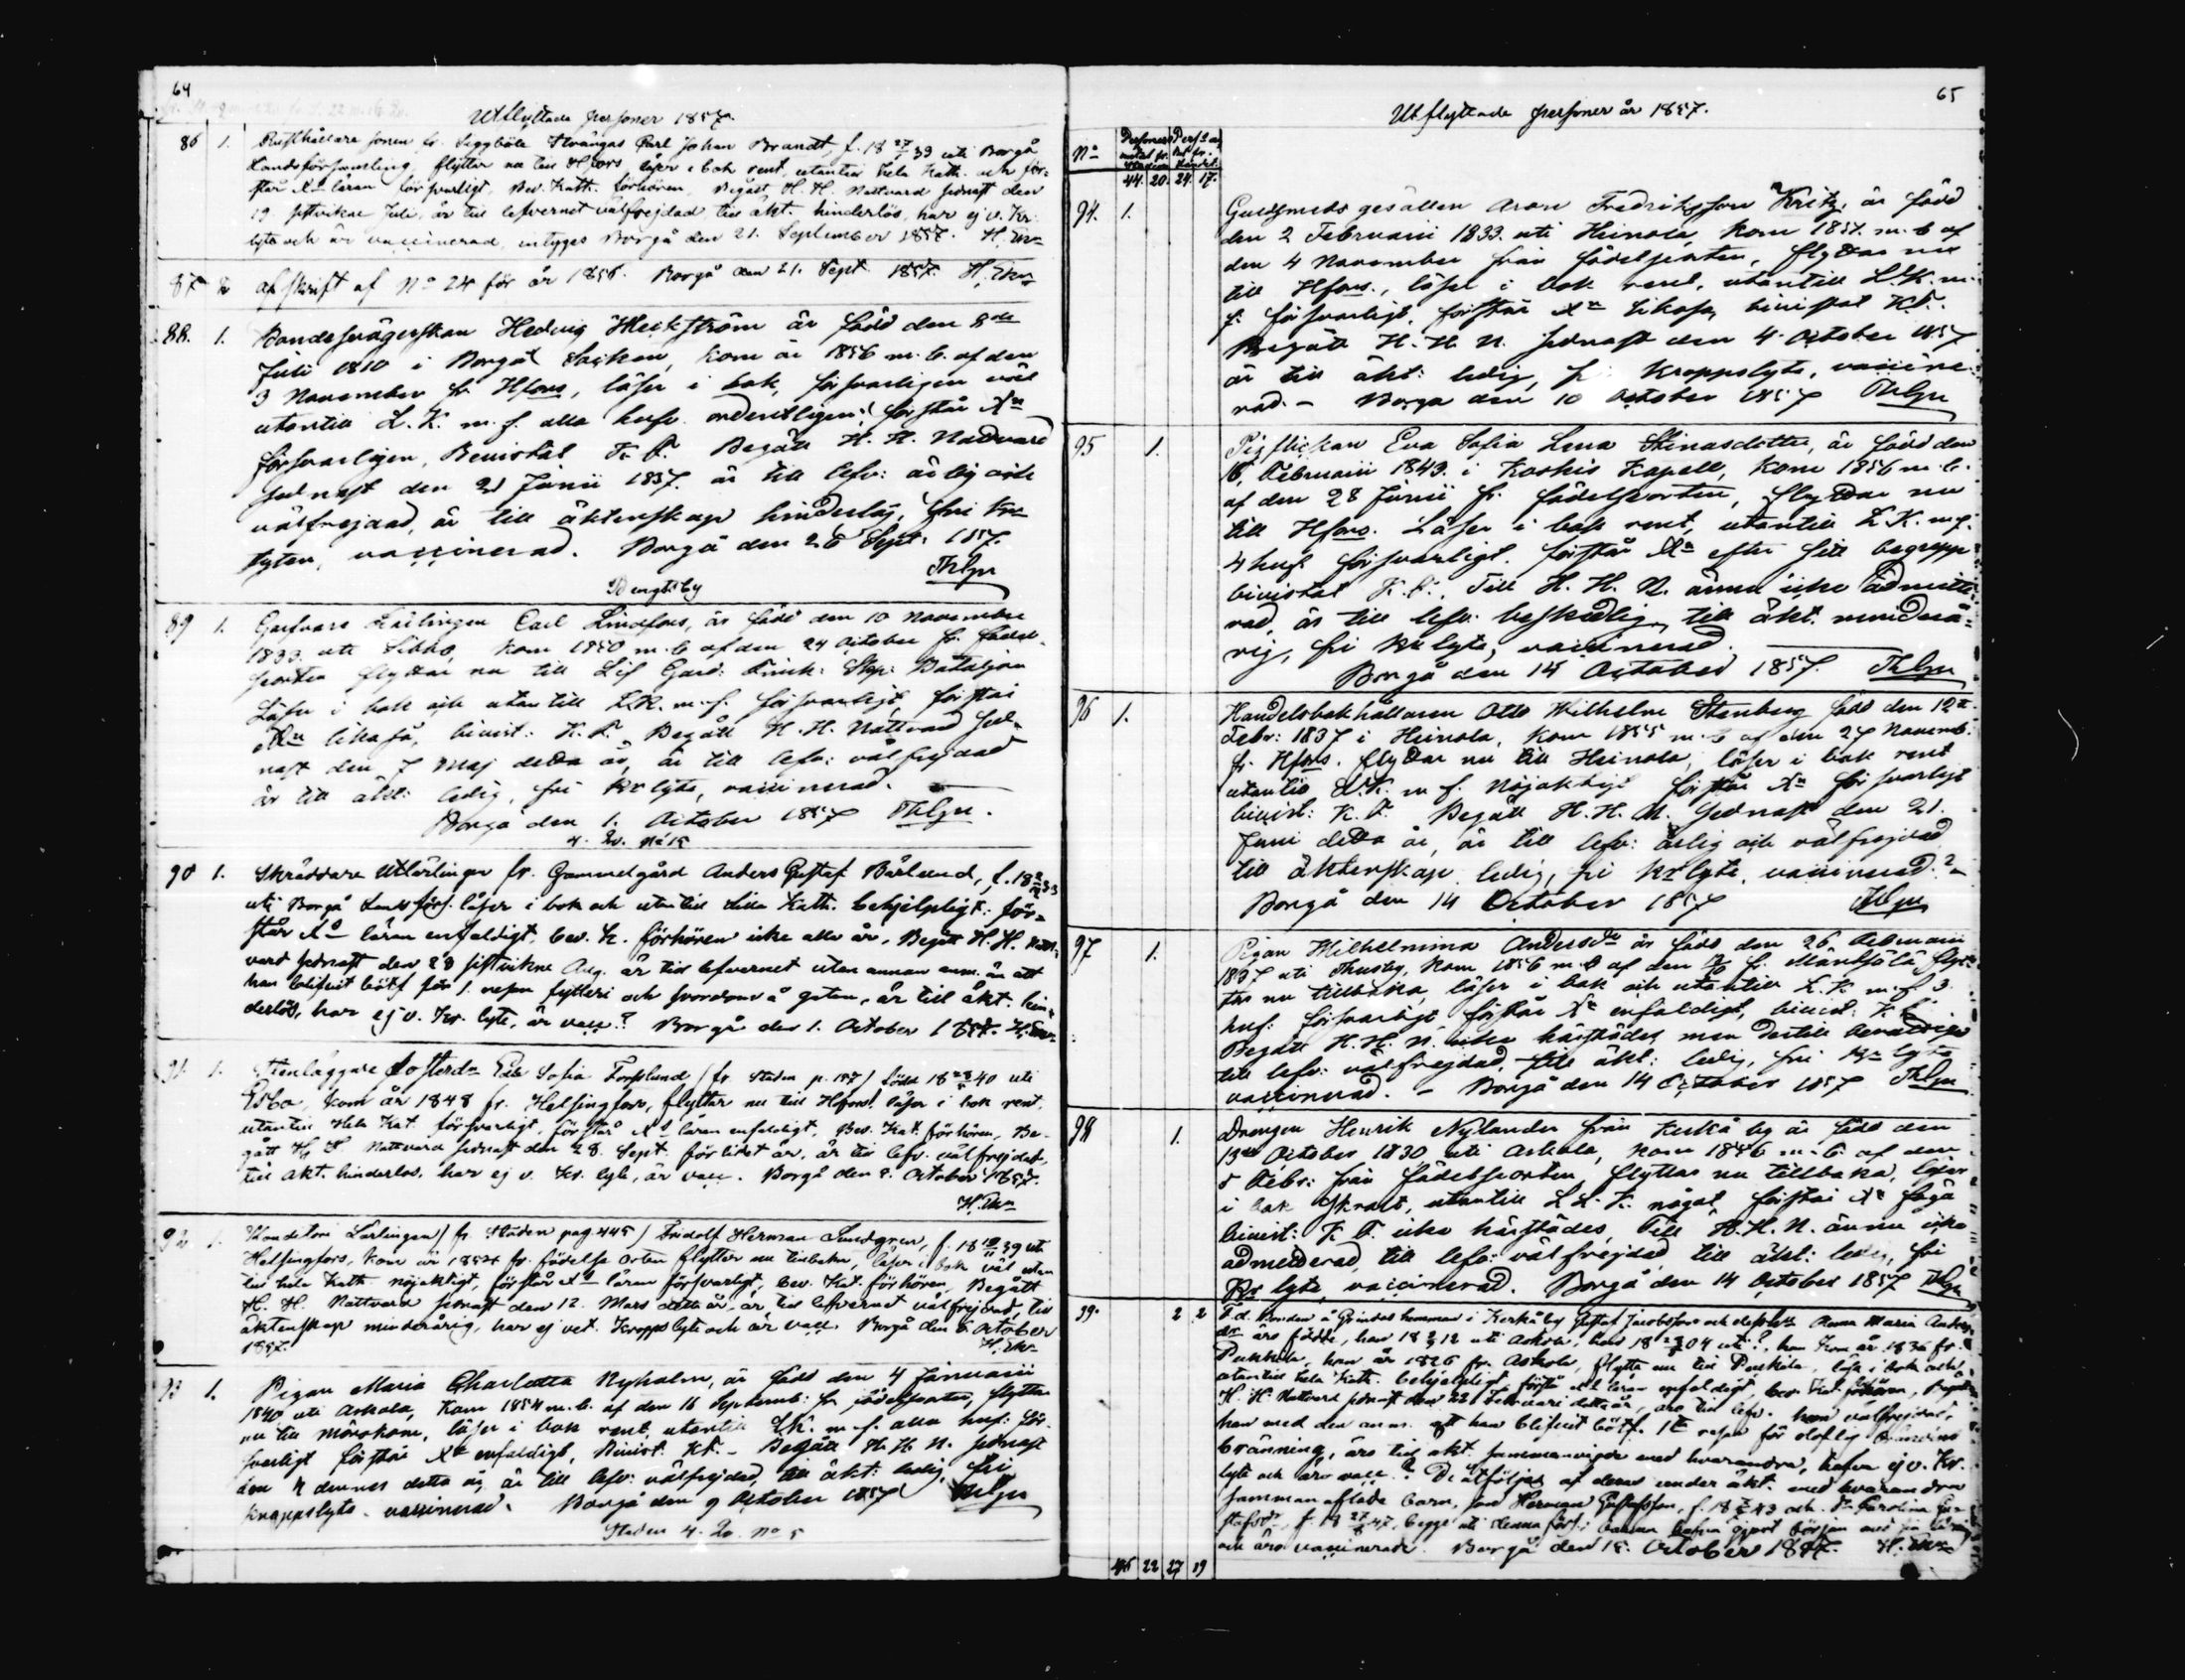 64
Utflyttade personer 1857.
86 1. Rusthållare sonen fr. Seggböle Strängas Carl Johan Brandt, f. 18 27/7 39 uti Borgå
Landsförsamling, flyttar nu till Hfors läser i bok rent, utantill hela Kath. och för-
står Xna läran försvarligt. Bev. Kath. förhören, Begått H. H. Nattvard sednast den
19. sistvikne Juli, är till lefvernet välfrejdad, till äkt. hinderlös, har ej v. Kr.
lyte och är vaccinerad, intygas Borgå den 21. September 1857.
87 2 afskrift af No 24 för år 1856. Borgå den 21. Sept. 1857.
88. 1. Bondesvägerskan Hedvig Heckström är född den 8de
Juli 1810 i Borgå Socken, kom år 1856 m. b. af den
3 November fr. Hfors, läser i bok, försvarligen väl
utantill L. K. m. f. alla husf. ordentligen, förstår Xn
försvarligen, Bevistat K. F. Begått H. H. Nattvard
sednast den 21 Junii 1857. är till lefv: ärlig och
välfrejdad, är till äktenskap hinderlös, fri Kr
lyten, vaccinerad. Borgå den 26 Sept: 1857.
Thlgn
Bengtsby
89 1. Garfvare Lärlingen Carl Lindfors, är född den 10 November
1833 uti Sibbo, kom 1850 m. b af den 24 October fr. födel-
seorten flyttar nu till Lif Gard: Finsk: Skp: Bataljon
Läser i bok och utantill L.K. m. f. försvarligt, förstår
Xn likaså, bivist: K. F. Begått H. H. Nattvard sed-
nast den 7 Maj detta år, är till lefv: välfrejdad
är till äkt: ledig, fri Kr lyte, vaccinerad.
Borgå den 1. October 1857 Thlgn.
4. No 15
90 1. Skräddare Utlärlingen fr. Gammelgård Anders Gustaf Bärlund, f. 18 33
uti Borgå Landsförs. läser i bok och utantill Lilla Kath. behjelpligt. för-
står Xa läran enfaldigt, bev. K. förhören icke alla år. Begått H. H. Natt-
vard sednast den 23 sistvikne Aug. är till lefvernet utan annan anm. än att
han blifvit bötf. för 1. resan fylleri och svordom å gatan, är till äkt. hin-
derlös, har ej v. Kr. lyte, är vacc.? Borgå den 1. October 1857.
91. 1. Stenläggare fosterdr Eva Sofia Forsslund (fr. Staden p. 187) född 18 40 uti
Esbo, kom år 1848 fr. Helsingfors, flyttar nu till Hfors, läser i bok rent,
utantill Hela Kat. försvarligt, förstår Xa läran enfaldigt, Bev. Kat. förhören, Be-
gått H. H. Nattvard sednast den 28. Sept. förlidet år, är till lefv. välfrejdad,
till äkt. hinderlös, har ej v. Kr. lyte, är vacc. Borgå den 2. October 1857.
92. 1. Konditori Lärlingen (fr. Staden pag. 445) Fridolf Herman Lundgren, f. 18 10/11 39 uti
Helsingfors, kom år 1854 fr. födelse orten flyttar nu tillbaka, läser i bok väl utan
till hela Kath nöjaktigt, förstår Xa läran försvarligt, bev. Kat. förhören, Begått
H. H. Nattvard sednast den 12. Mars detta år, är till lefvernet välfrejdad, till
äktenskap minderårig, har ej vet. Kroppslyte och är vacc. Borgå den 6. October
1857.
93 1. Pigan Maria Charlotta Nyholm, är född den 4 Januarii
1840 uti Askola, kom 1854 m. b. af den 16 Septemb: fr födelseorten, flyttar
nu till Mörskom, läser i bok rent, utantill L.K. m. f. alla husf: för-
svarligt förstår Xn enfaldigt, Bivist. KF. - Begått H. H N. sednast
den 4 dennes detta år, är till lefv: välfrejdad, till äkt: ledig, fri
kroppslyte - vaccinerad. Borgå den 9 October 1857 Thlgn
Staden 4. No 5
65
Utflyttade personer år 1857.
No
44. 20. 24. 17.
94. 1. Guldsmeds gesällen Aron Fredriksson Kritz, är född
den 2 Februarii 1833 uti Heinola, kom 1851. m. b af
den 4 November från födelseorten, flyttar nu
till Hfors., läser i bok rent, utantill L.K. m.
f. försvarligt, förstår Xn likaså, bivistat K.F.
Begått H. H. N. sednast den 4 October 1857
är till äkt: ledig, fri kroppslyte, vaccine-
rad. - Borgå den 10 October 1857 Thlgn
95 1. Pigflickan Eva Sofia Lena Stinasdotter, är född den
16 Februarii 1843. i Koskis Kapell, kom 1856 m. b.
af den 28 Junii fr. födelseorten, flyttar nu
till Hfors. Läser i bok rent, utantill L.K. m f.
4 husf försvarligt. förstår Xn efter sitt begrepp
bivistat K.F., till H. H. N. ännu icke admitte-
rad, är till lefv: beskedlig, till äkt. minderå-
rig, fri Kr lyte, vaccinerad.
Borgå den 14 October 1857. Thlgn
96 1. Handelsbokhållaren Otto Wilhelm Stenberg född den 12te
Febr: 1837 i Heinola, kom 1855 m. b af den 27 Novemb:
fr. Hfors. flyttar nu till Heinola, läser i bok rent
utantill L.K. m f. Nöjaktigt förstår Xn försvarligt
bivist: K. F. Begått H. H. N. sednast den 21.
Juni detta år, är till lefv: ärlig och välfrejdad
till äktenskap ledig, fri Kr lyte, vaccinerad.?
Borgå den 14 October 1857 Thlgn
97 1. Pigan Wilhelmina Andersdr är född den 26 Februarii
1837 uti Thusby, kom 1856 m. b af den fr. Mäntsälä flyt-
tar nu tillbaka, läser i bok och utantill L.K. m. f 3
husf: försvarligt förstår Xn enfaldigt, bivist: K. F.
Begått H. H. N. icke härstädes, men dertill berättigad
till lefv: välfrejdad, till äkt: ledig, fri Kr lyte
vaccinerad. - Borgå den 14 October 1857 Thlgn
98 1. Drengen Henrik Nylander från Kerkå by är född den
13de October 1830 uti Askola, kom 1856 m. b. af den
5 Febr: från födelseorten, flyttar nu tillbaka, läser
i bok skralt, utantill L.L.K. något, förstår Xn föga
bivist: K. F. icke härstädes, Till H. H. N. ännu icke
admitterad, till lefv: välfrejdad, till äkt: ledig, fri
Kr lyte, vaccinerad. Borgå den 14 October 1857 Thlgn
99. 2 2 F.d. Bonden å Grindas hemman i Kerkå by Gustaf Jacobsson och dess h. Anna Maria Anders-
dr äro födde, han 18 12 uti Askola, hon 18 04 uti?, hon kom år 1836 fr.
Pukkila, han år 1826 fr. Askola, flytta nu till Pukkila, läsa i bok och
utantill hela Kath. behjelpligt, förstå Xa läran enfaldigt, bev. Kat. förhören, Begått
H. H. Nattvard sednast den 22 Februari detta år, äro till lefv. hon välfrejdad,
han med den anm. att han blifvit bötf. 1ta resan för olaglig bränvins
bränning, äro till äkt. sammanvigde med hvarandra, hafva ej v. Kr.
lyte och äro vacc.? De åtföljas af deras under äkt. med hvarandra
sammanaflade barn, son Herman Gustafsson, f. 18 43 och dr Carolina Gu-
stafsdr, f. 18 27/8 47, begge uti denna förs:, barnen hafva gjort början med sin läsning
och äro vaccinerade. Borgå den 15. October 1857.
46 22 27 19